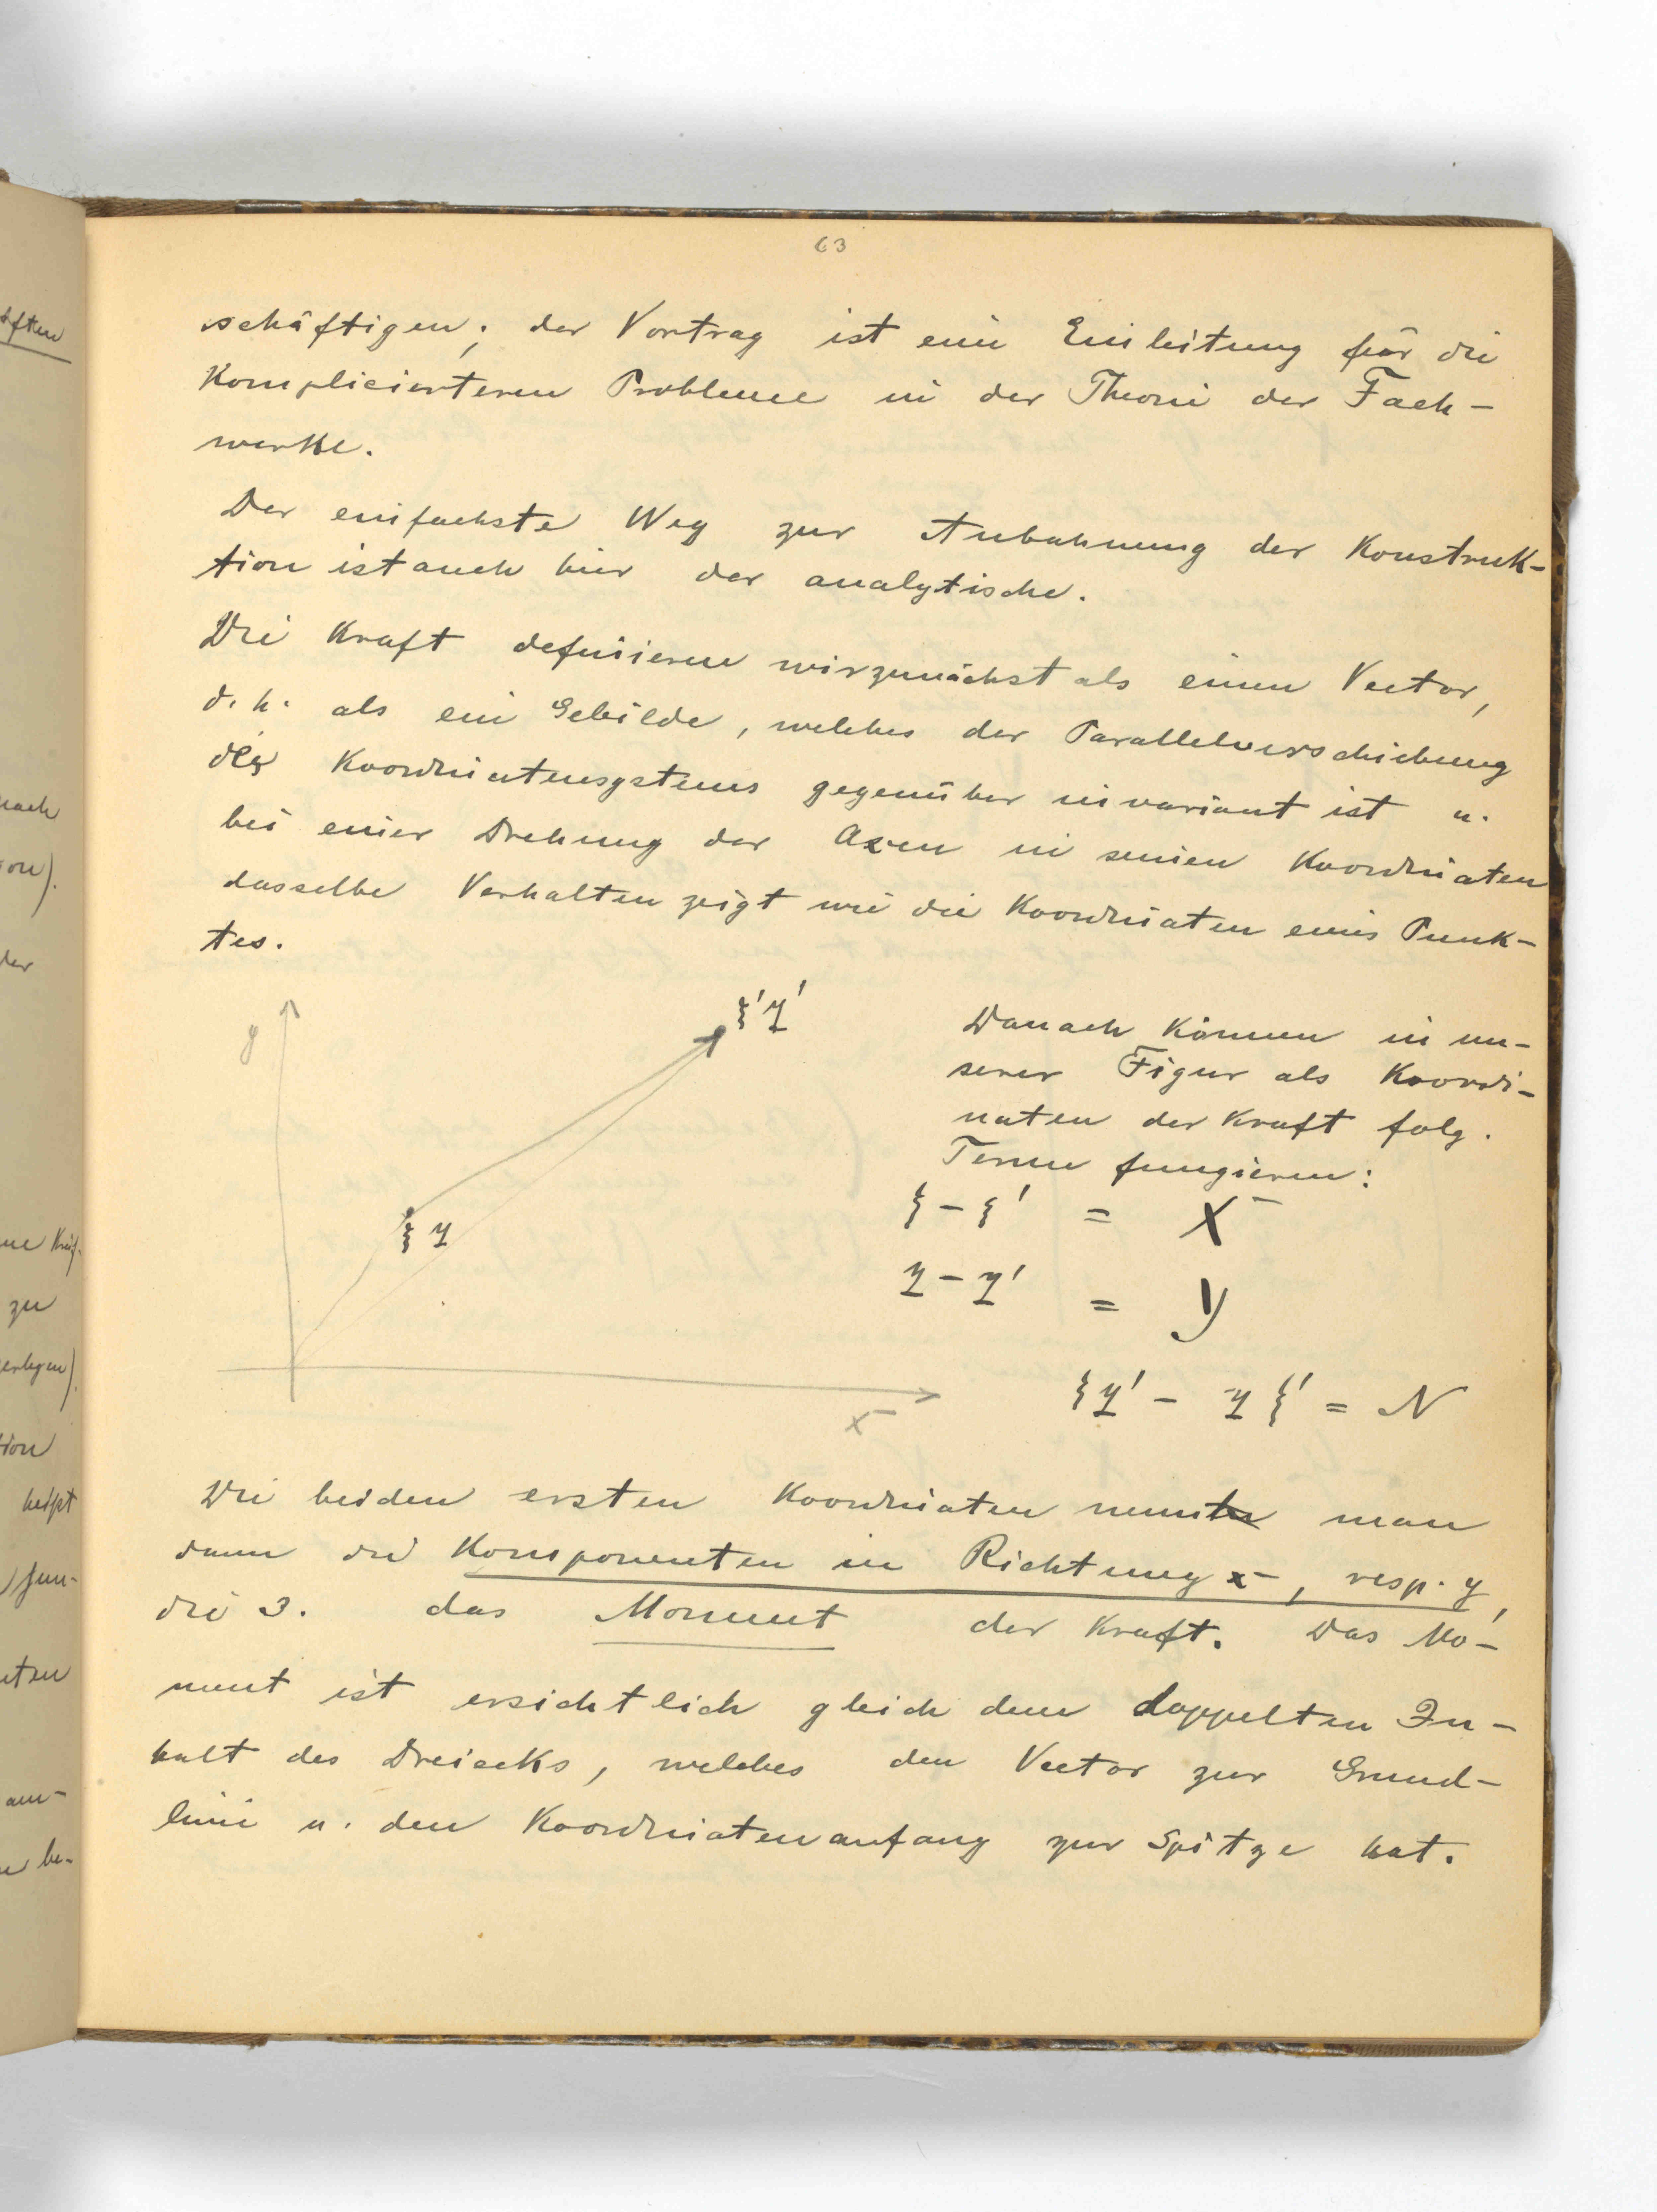 63
schäftigen; der Vortrag ist eine Einleitung für die
komplicierteren Probleme in der Theorie der Fach-
werke.
Der einfachste Weg zur Anbahnung der Konstruk-
tion ist auch hier der analytische.
Die Kraft definieren wir zunächst als einen Vector,
d. h. als ein Gebilde, welches der Parallelverschiebung
des Koordinatensystems gegenüber invariant ist u.
bei einer Drehung der Axen in seinen Koordinaten
dasselbe Verhalten zeigt wie die Koordinaten eines Punk-
tes.
y
ξ'η'
ξ η
x
Danach können in un-
serer Figur als Koordi-
naten der Kraft folg.
Terme fungieren:
ξ - ξ' = X
η - η' = Y
ξη' - ηξ' = N
Die beiden ersten Koordinaten nennt man
dann die Komponenten in Richtung x, resp. y,
die 3. das Moment der Kraft. Das Mo-
ment ist ersichtlich gleich dem doppelten In-
halt des Dreiecks, welches den Vector zur Grund-
linie u. den Koordinatenanfang zur Spitze hat.
nach
der
zu
heißt
am-
be-